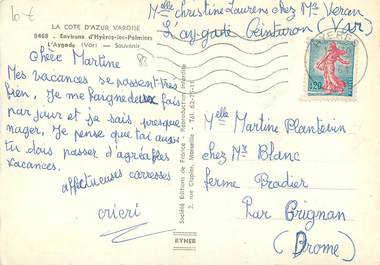 10 €
Melle Christine Laurens chez Mr Veran
L'aygade Ceintaron (Var)
LA COTE D'AZUR VAROISE
8469 - Environs d'Hyères-les-Palmiers
L'Aygade (Var) - Souvenir
Chère Martine
Mes vacances se passent très
bien. Je me baigne deux fois
par jour et je sais presque
nager. Je pense que toi aussi
tu dois passer d'agréables
vacances.
affectueuses caresses
cricri
Société Editions de France - Reproduction Interdite
2, rue Chaplier, Marseille - Tél. 62-75-11
RYNER
HYERES
0,20
Melle Martine Planterin
chez Mr Blanc
ferme Pradier
Par Grignan
(Drome)